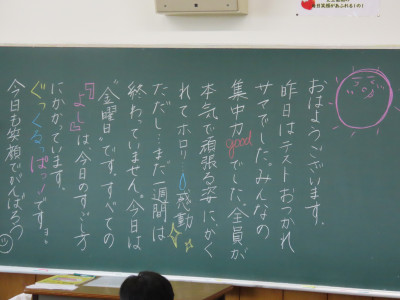 おはようございます。
昨日はテストおつかれ
サマでした。みんなの
集中力goodでした。全員が
本気で頑張る姿にかく
れてホロリ感動
ただし…まだ一週間は
終わっていません。今日は
"金曜日"です。すべての
『よし』は今日のすごし方
にかかっています。
ぐっくるっぱっ!です。
今日も笑顔でがんばろっ